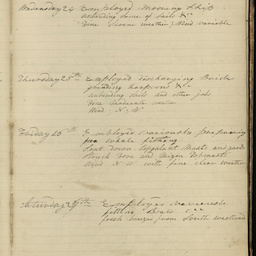 Wednesday 24 Employed mooring ship
unbending some of sails &c
fine Sloon weather Wind variable
Thursday 25th Employed discharging Brick
shooking hoops &c
unbending sails and other jobs
fine Moderate weather
Wind N. W
Friday 26th Employed variously preparing
for whale fishing
Sent down topgallant Masts and yards
Struck fore and Mizen topmasts
Wind N W with fine clear weather
Saturday 27th Employed variously
fitting boats &c
fresh breezes from South westward